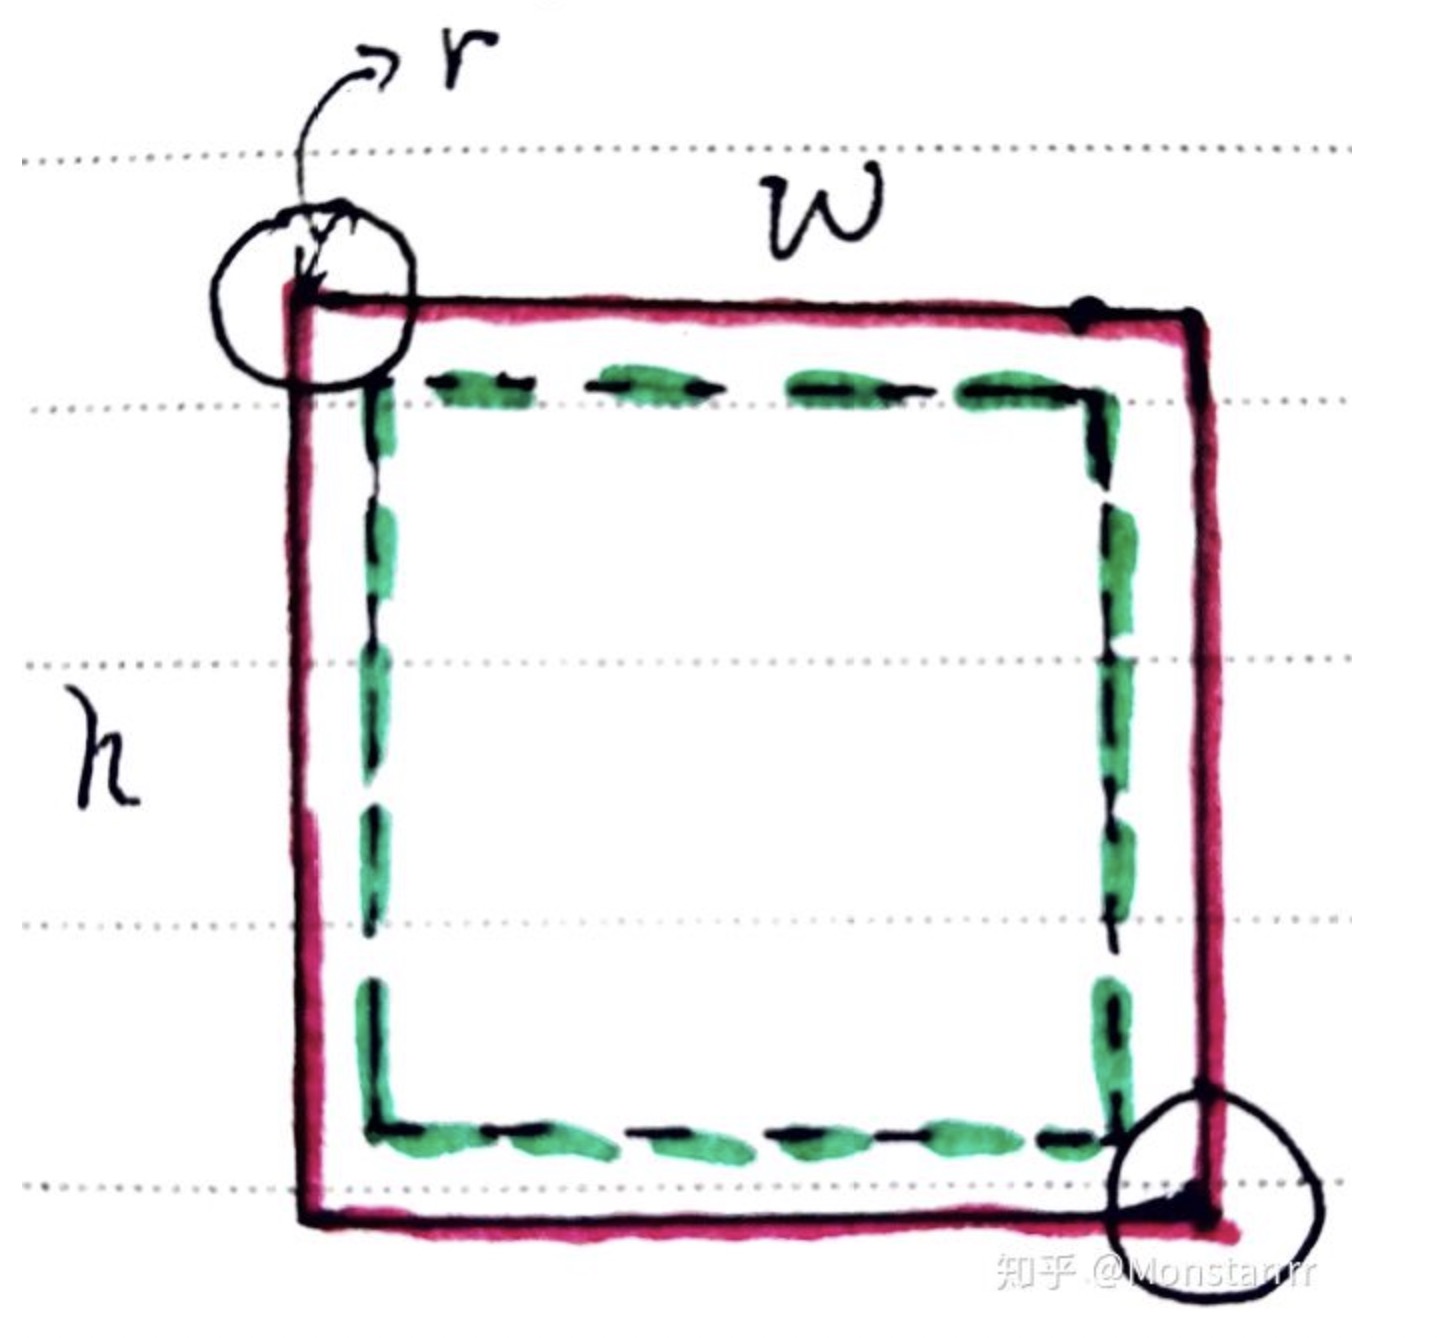 r
w
h
知乎 @Monstarrr